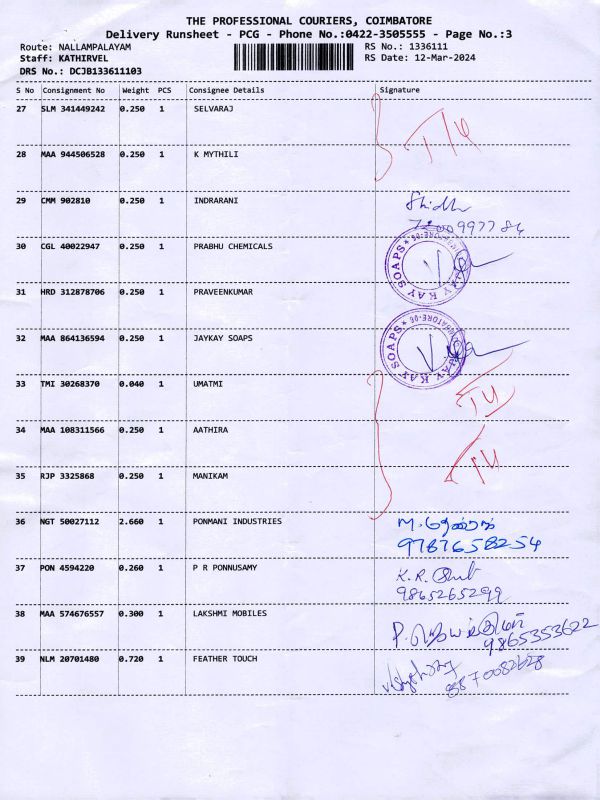 THE PROFESSIONAL COURIERS, COIMBATORE
Delivery Runsheet - PCG - Phone No.:0422-3505555 - Page No.:3
Route: NALLAMPALAYAM RS No.: 1336111
Staff: KATHIRVEL RS Date: 12-Mar-2024
DRS No.: DCJB133611103
S No Consignment No Weight PCS Consignee Details Signature
27 SLM 341449242 0.250 1 SELVARAJ
28 MAA 944506528 0.250 1 K MYTHILI
29 CMM 902810 0.250 1 INDRARANI
30 CGL 40022947 0.250 1 PRABHU CHEMICALS
JAY KAY SOAPS
31 HRD 312878706 0.250 1 PRAVEENKUMAR
32 MAA 864136594 0.250 1 JAYKAY SOAPS
JAY KAY SOAPS
33 TMI 30268370 0.040 1 UMATMI
34 MAA 108311566 0.250 1 AATHIRA
35 RJP 3325868 0.250 1 MANIKAM
36 NGT 50027112 2.660 1 PONMANI INDUSTRIES
9787658254
37 PON 4594220 0.260 1 P R PONNUSAMY K.R.
9865265299
38 MAA 574676557 0.300 1 LAKSHMI MOBILES P.
9865353622
39 NLM 20701480 0.720 1 FEATHER TOUCH
8870082628